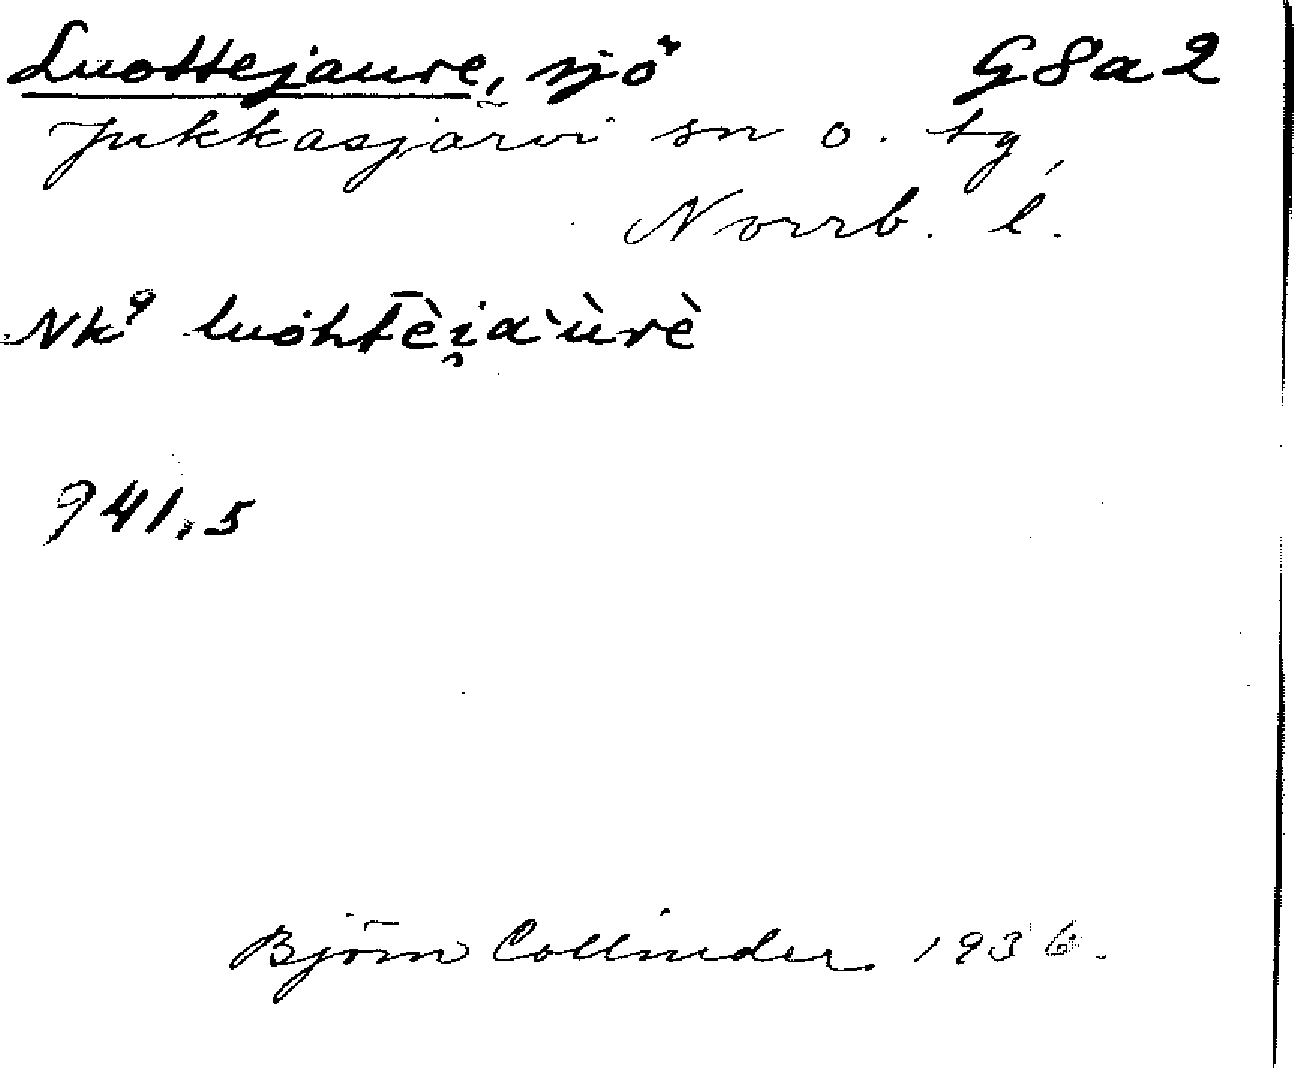 Luottejaure, sjö G8a2
Jukkasjärvi sn o. tg,
Norrb. l.
Nk⁹ luohtèi̯a'ùrè
941,5
Björn Collinder 1936.